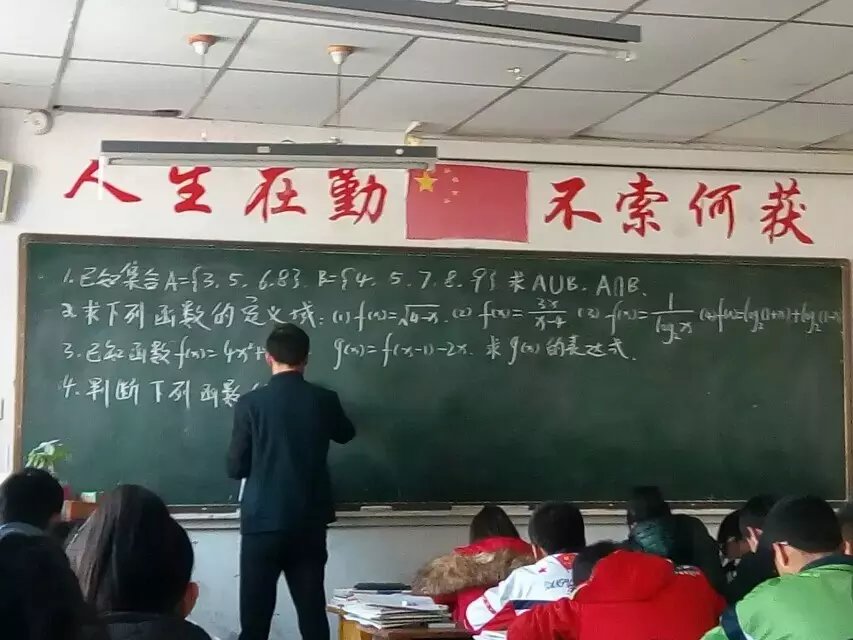 人生在勤 不索何获
1.已知集合A={3,5,6,8},B={4,5,7,8,9}求A∪B,A∩B.
2.求下列函数的定义域:(1)f(x)=√(4-x).(2)f(x)=3x/(x-4)(3)f(x)=1/log₂x(4)f(x)=log₂(1+x)+log₂(1-x
3.已知函数f(x)=4x²+ g(x)=f(x-1)-2x.求g(x)的表达式.
4.判断下列函数